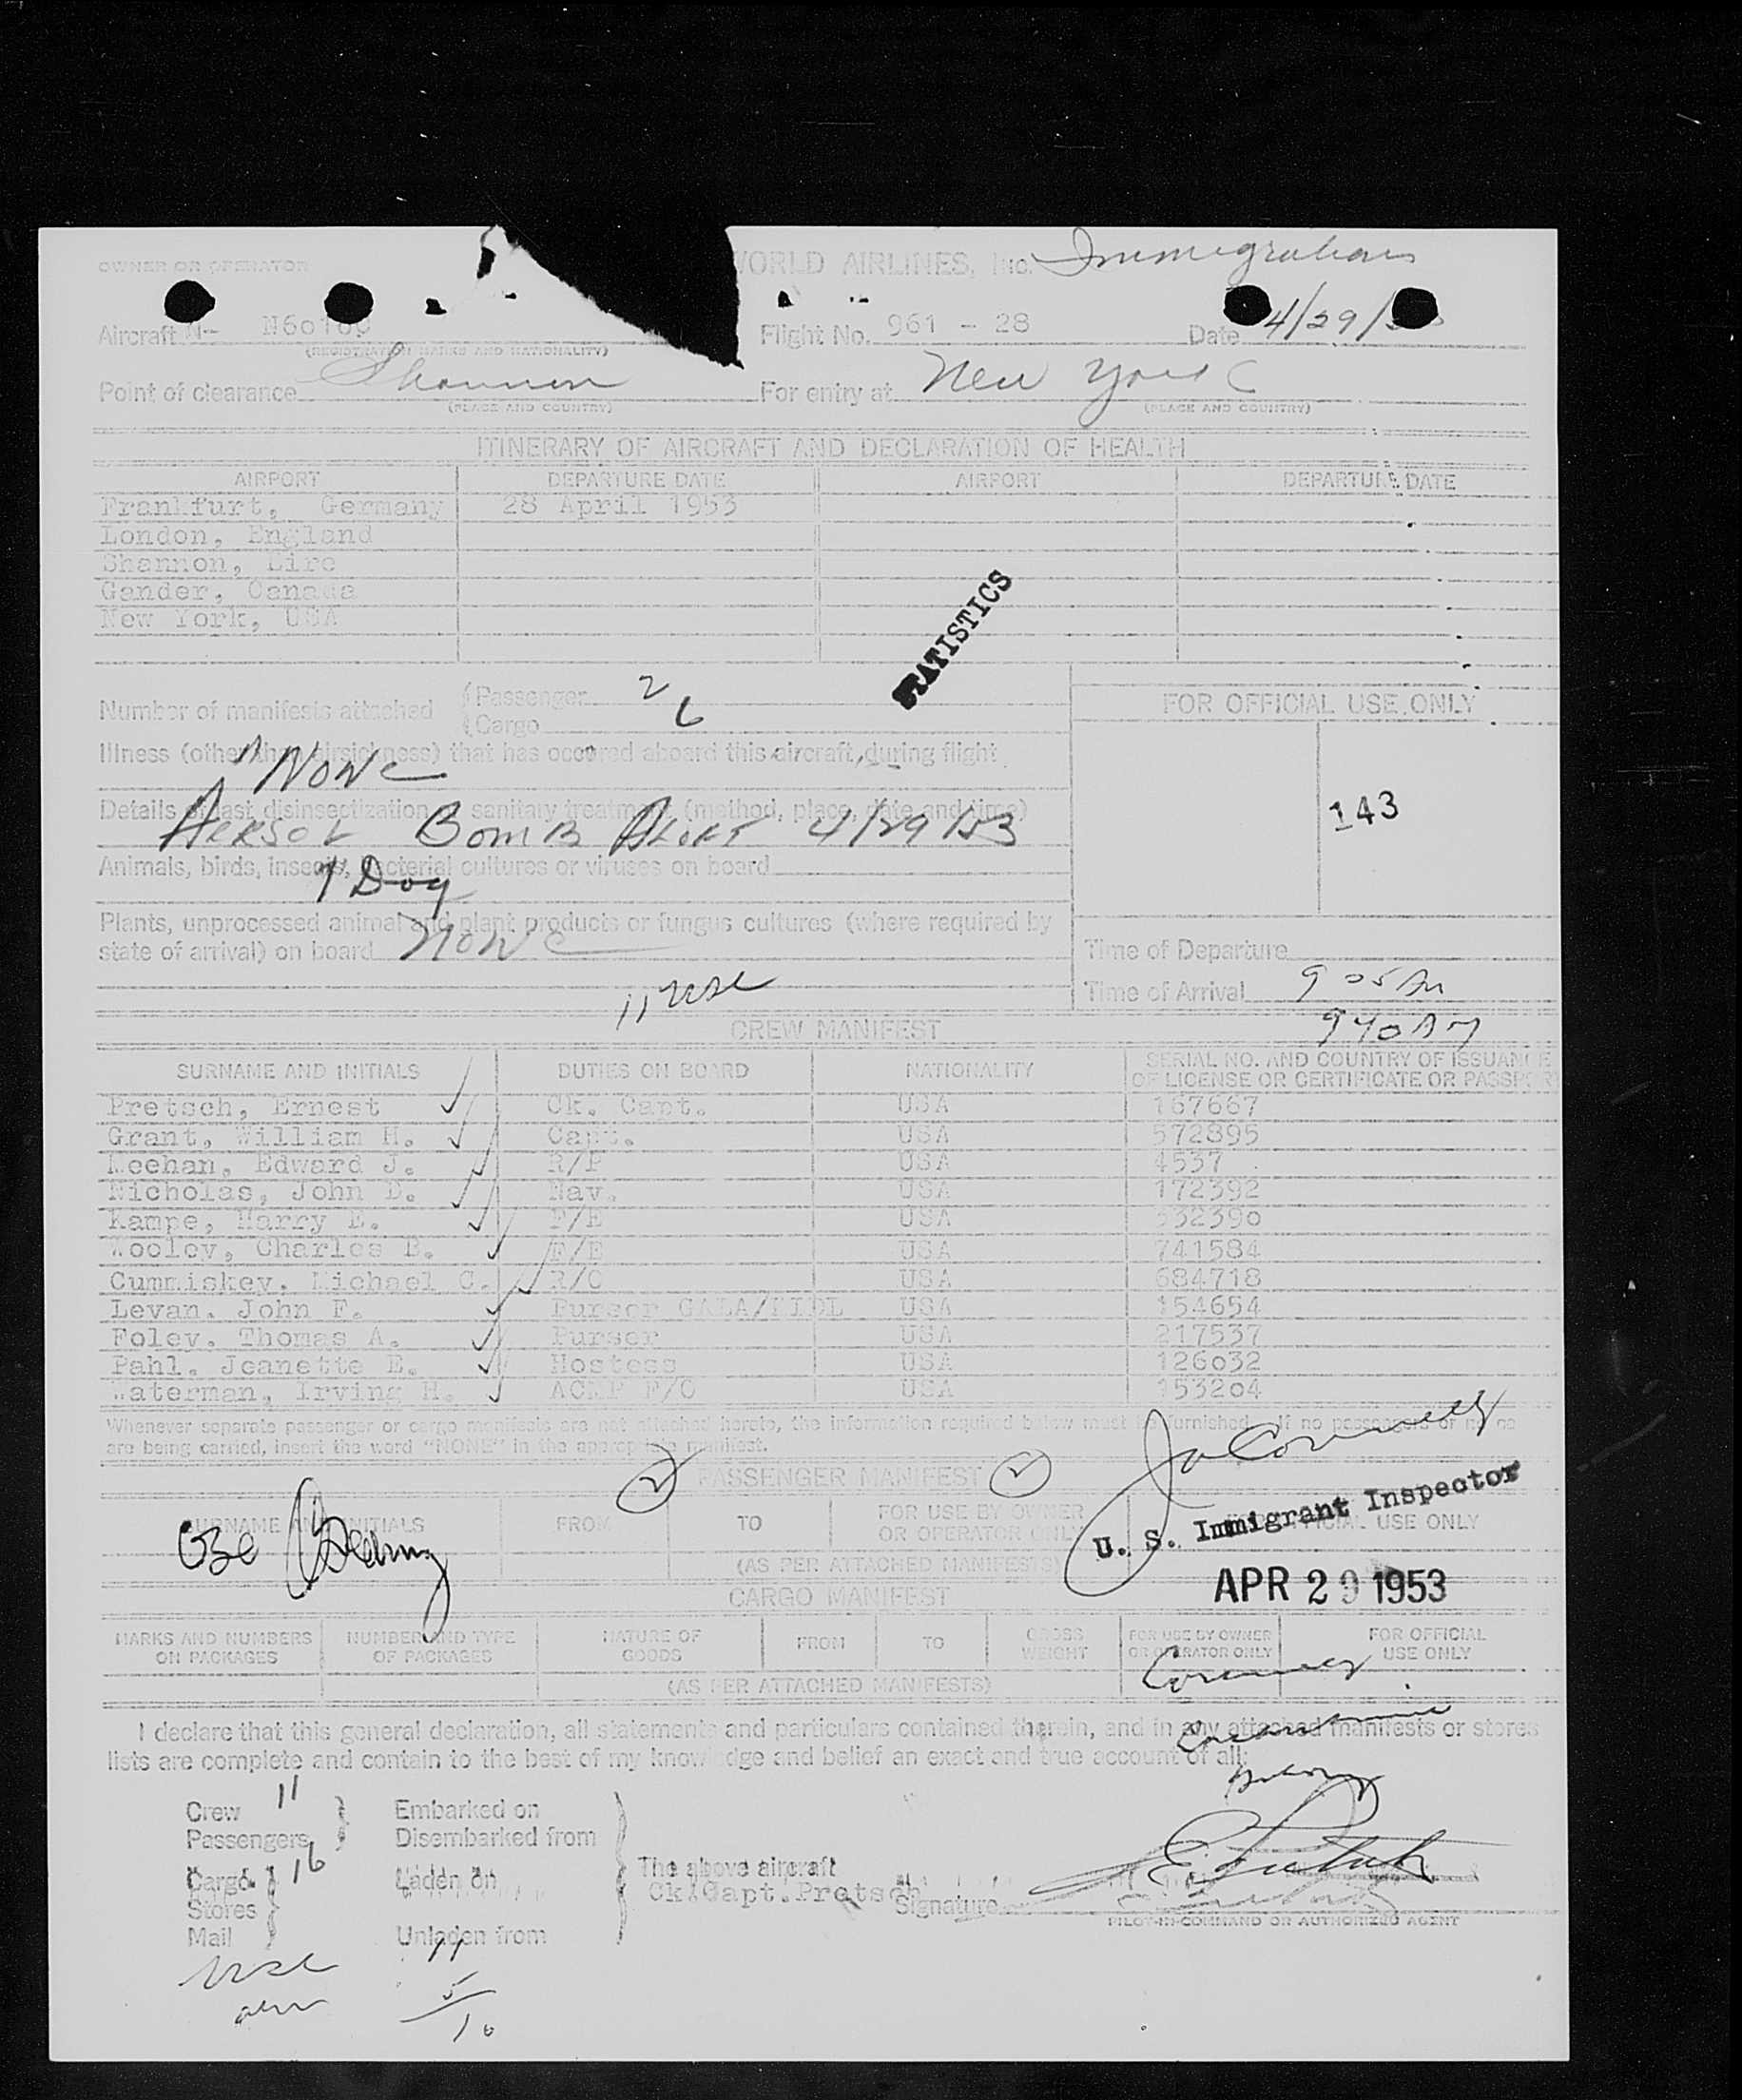 OWNER OR OPERATOR WORLD AIRLINES, Inc. Immigration
Aircraft N- (REGISTRATION MARKS AND NATIONALITY) Flight No. 961 - 28 Date 4/29/
Point of clearance Shannon (PLACE AND COUNTRY) For entry at New York (PLACE AND COUNTRY)
ITINERARY OF AIRCRAFT AND DECLARATION OF HEALTH
AIRPORT DEPARTURE DATE AIRPORT DEPARTURE DATE
Frankfurt, Germany 28 April 1953
London, England
Shannon, Eire
Gander, Canada
New York, USA
STATISTICS
Number of manifests attached (Passenger 2
(Cargo 6
FOR OFFICIAL USE ONLY
Illness (other than airsickness) that has occured aboard this aircraft, during flight
None
Details of last disinsectization or sanitary treatment (method, place, date and time)
Aersol Bomb 4/29/53
143
Animals, birds, insects, bacterial cultures or viruses on board
1 Dog
Plants, unprocessed animal and plant products or fungus cultures (where required by
state of arrival) on board None
Time of Departure
Time of Arrival 9 05 AM
11 USC
9 40 AM
CREW MANIFEST
SURNAME AND INITIALS DUTIES ON BOARD NATIONALITY SERIAL NO. AND COUNTRY OF ISSUANCE
OF LICENSE OR CERTIFICATE OR PASSPORT
Pretsch, Ernest Ck. Capt. USA 167667
Grant, William H. Capt. USA 572895
Meehan, Edward J. R/P USA 4537
Nicholas, John D. Nav. USA 172392
Kampe, Harry E. F/E USA 332390
Wooley, Charles B. F/E USA 741584
Cummiskey, Michael C. R/O USA 684718
Levan, John F. Purser USA 154654
Foley, Thomas A. Purser USA 217537
Pahl, Jeanette E. Hostess USA 126032
Waterman, Irving H. ACMF F/O USA 153204
Whenever separate passenger or cargo manifests are not attached hereto, the information required below must be furnished. If no passengers or
are being carried, insert the word "NONE" in the appropriate manifest.
2 PASSENGER MANIFEST 2
SURNAME AND INITIALS FROM TO FOR USE BY OWNER
OR OPERATOR ONLY FOR OFFICIAL USE ONLY
U. S. Immigrant Inspector
(AS PER ATTACHED MANIFESTS)
APR 29 1953
CARGO MANIFEST
MARKS AND NUMBERS
ON PACKAGES NUMBER AND TYPE
OF PACKAGES NATURE OF
GOODS FROM TO GROSS
WEIGHT FOR USE BY OWNER
OR OPERATOR ONLY FOR OFFICIAL
USE ONLY
(AS PER ATTACHED MANIFESTS)
I declare that this general declaration, all statements and particulars contained therein, and in any attached manifests or stores
lists are complete and contain to the best of my knowledge and belief an exact and true account of all:
Crew 11 Embarked on
Passengers 16 Disembarked from
Cargo Laden on The above aircraft
Stores Ck. Capt. Pretsch Signature
PILOT-IN-COMMAND OR AUTHORIZED AGENT
Mail Unladen from
USC 11
5
16